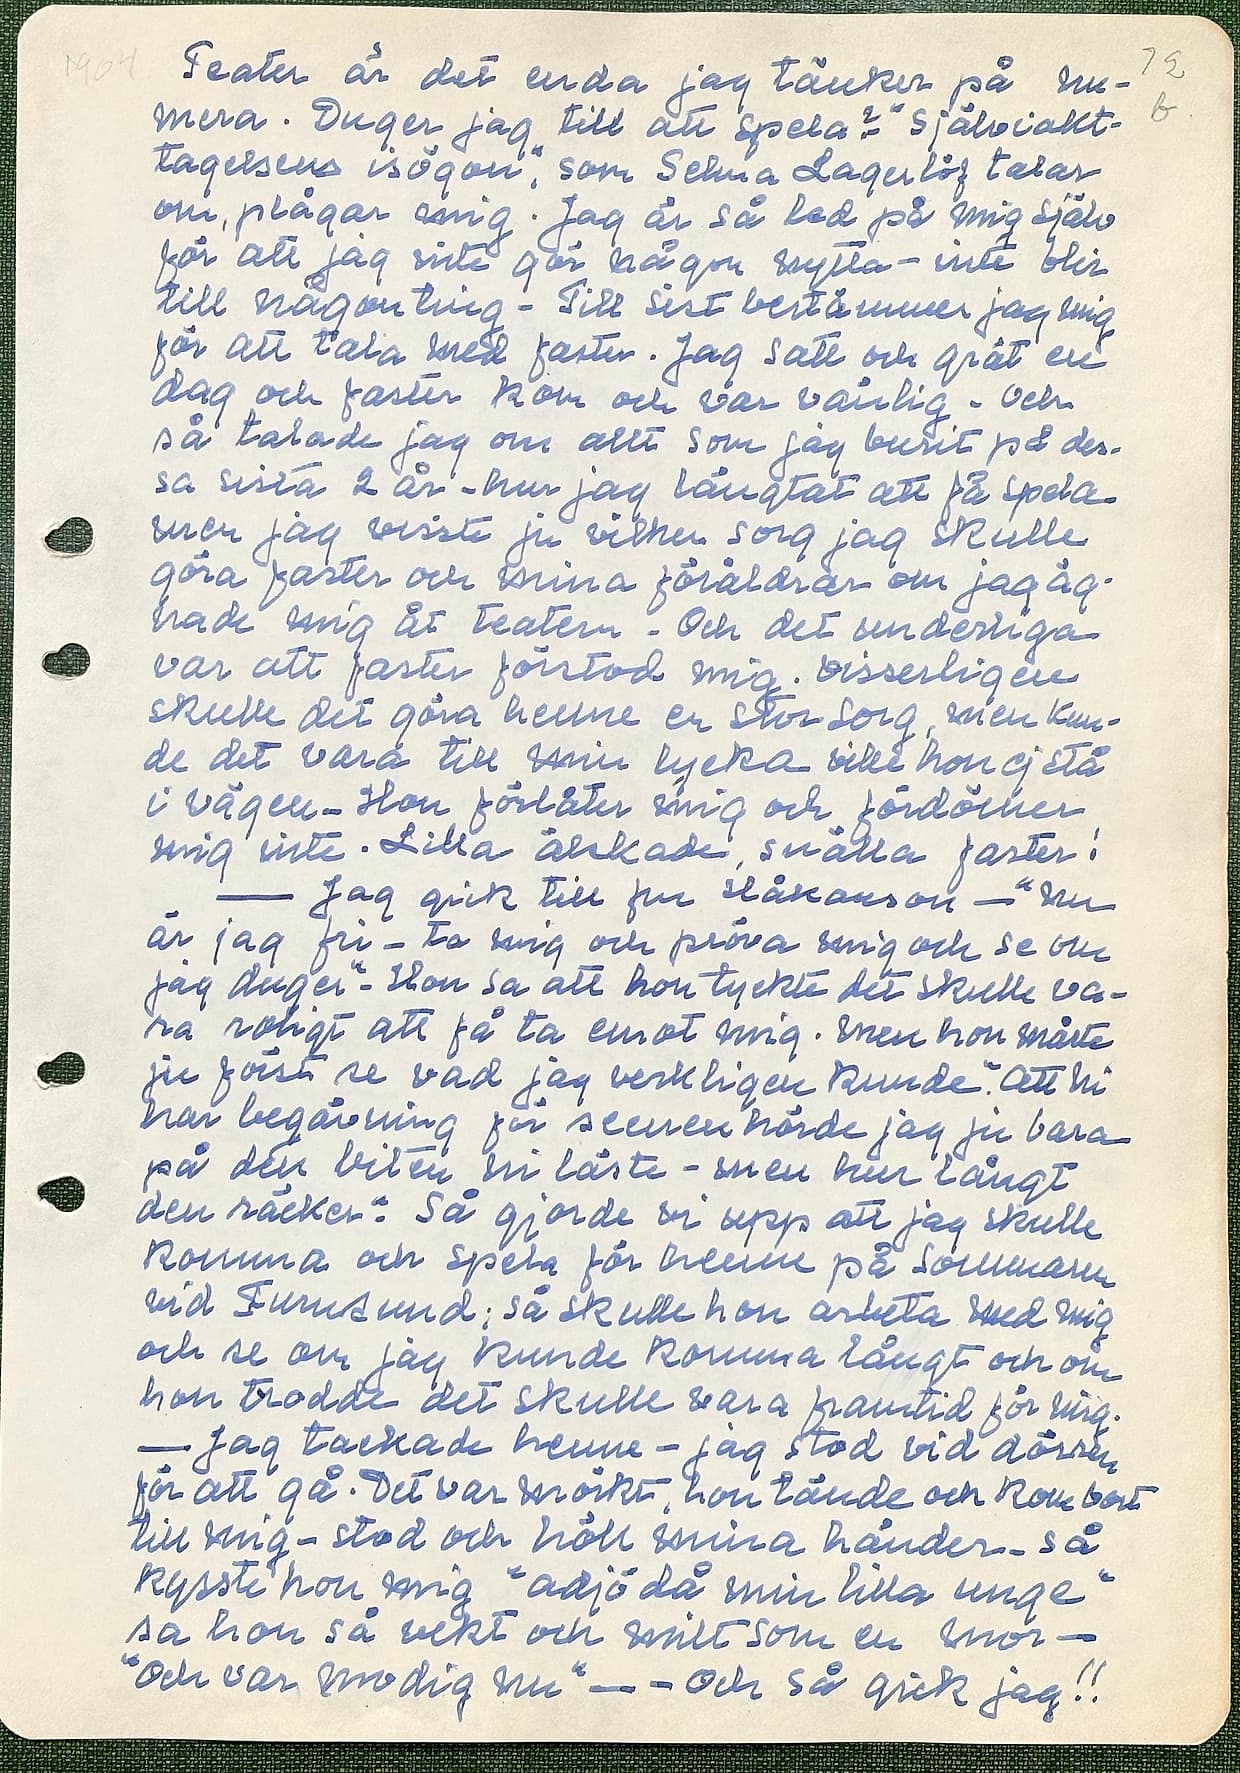 1904
72
b.
Teater är det enda jag tänker på nu-
mera. Duger jag till att spela? "Själviakt-
tagelsens isögon", som Selma Lagerlöf talar
om, plågar mig. Jag är så led på mig själv
för att jag inte gör någon nytta – inte blir
till någonting – Till sist bestämmer jag mig
för att tala med faster. Jag satt och grät en
dag och faster kom och var vänlig – Och
så talade jag om allt som jag burit på des-
sa sista 2 år – hur jag längtat att få spela
men jag visste ju vilken sorg jag skulle
göra faster och mina föräldrar om jag äg-
nade mig åt teatern – Och det underliga
var att faster förstod mig. Visserligen
skulle det göra henne en stor sorg, men kun-
de det vara till min lycka ville hon ej stå
i vägen – Hon förlåter mig och fördömer
mig inte. Lilla älskade, snälla faster!
— Jag gick till fru Håkanson — "Nu
är jag fri – ta mig och pröva mig och se om
jag duger" – Hon sa att hon tyckte det skulle va-
ra roligt att få ta emot mig. Men hon måste
ju först se vad jag verkligen kunde". Att Ni
har begåvning för scenen hörde jag ju bara
på den biten Ni läste – men hur långt
den räcker". Så gjorde vi upp att jag skulle
komma och spela för henne på sommaren
vid Furusund; så skulle hon arbeta med mig
och se om jag kunde komma långt och om
hon trodde det skulle vara framtid för mig.
— Jag tackade henne – jag stod vid dörren
för att gå. Det var mörkt, hon tände och kom bort
till mig – stod och höll mina händer – så
kysste hon mig "adjö då min lilla unge"
sa hon så vekt och milt som en mor —
"Och var modig nu" — – Och så gick jag!!